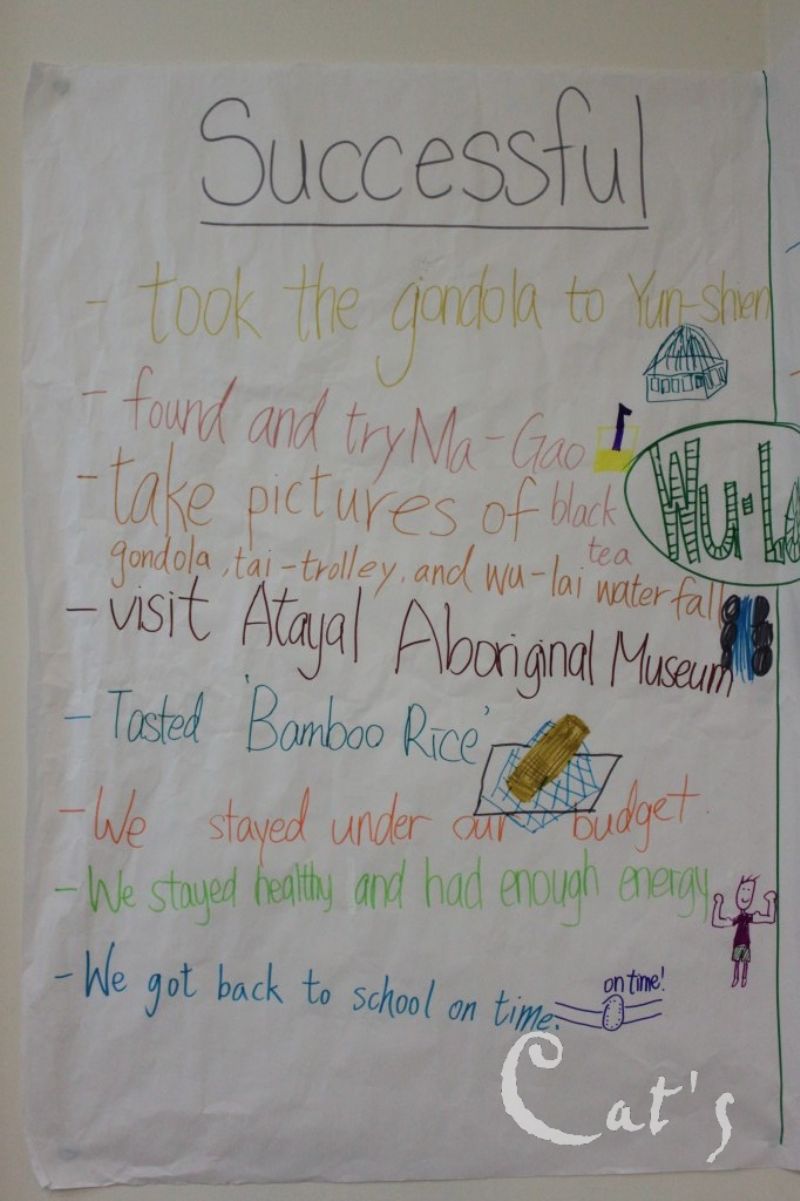 Successful
- took the gondola to Yun-shien
- found and try Ma-Gao
- take pictures of black
tea
gondola, tai-trolley, and wu-lai waterfall
- visit Atayal Aboriginal Museum
- Tasted 'Bamboo Rice'
- We stayed under our budget.
- We stayed healthy and had enough energy
- We got back to school on time.
on time!
Wu-La
Cat's